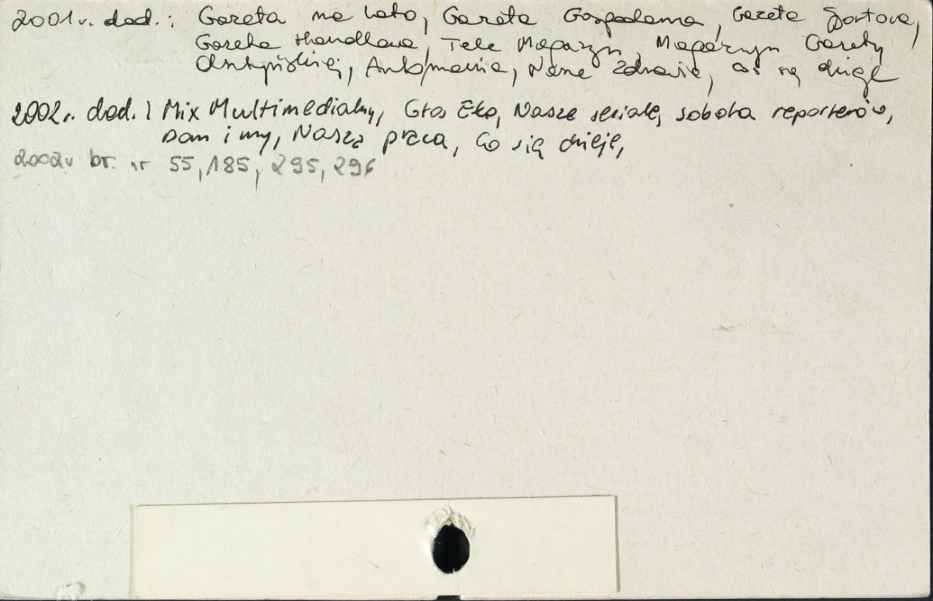 2001r. dod.: Gazeta na lato, Gazeta Gospodarna, Gazeta Sportowa,
Gazeta Handlowa, Tele Magazyn, Magazyn Gazety
Olsztyńskiej, Automania, Nasze Zdrowie, co się dzieje
2002r. dod.: Mix Multimedialny, Głos Ełku, Nasze seriale, sobota reporterów,
Dom i my, Nasza praca, Co się dzieje,
2002r br. nr 55, 185, 295, 296